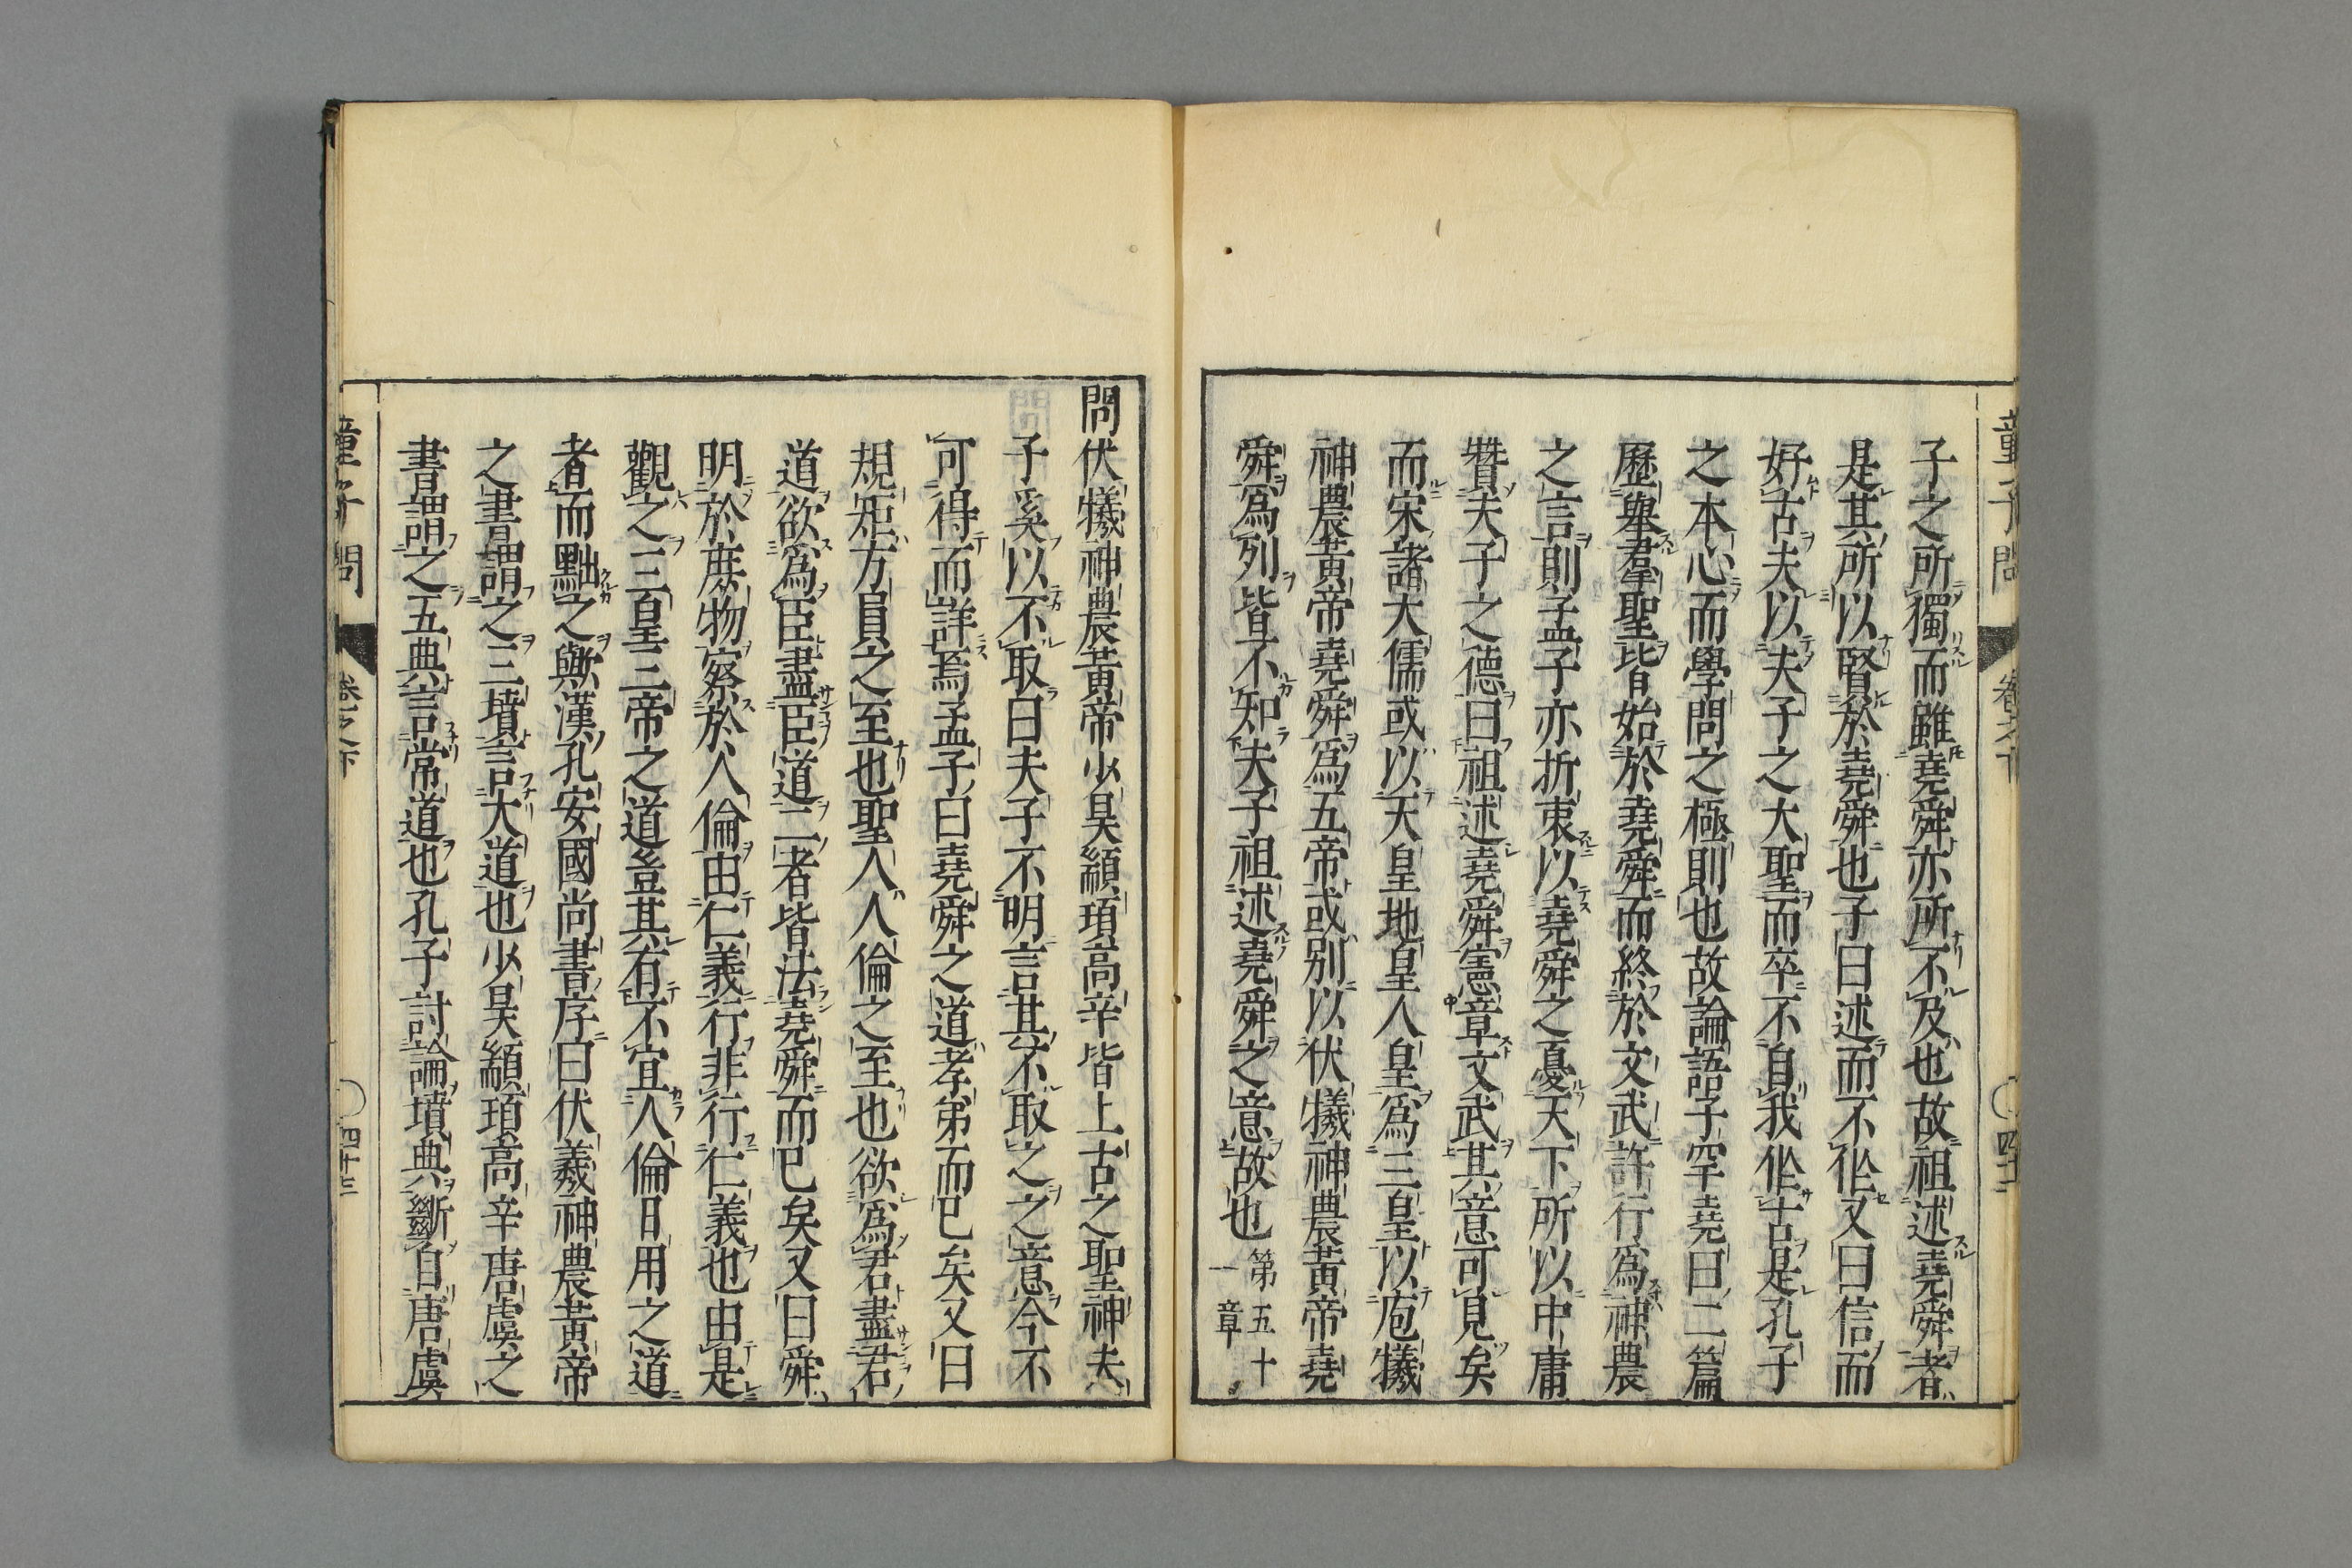 童子問　卷之下　四十二
子之所獨而雖堯舜亦所不及也故祖述堯舜者
是其所以賢於堯舜也子曰述而不作又曰信而
好古夫以夫子之大聖而卒不自我作古是孔子
之本心而學問之極則也故論語子罕堯曰二篇
歷舉羣聖皆始於堯舜而終於文武許行爲神農
之言則孟子亦折衷以堯舜之憂天下所以中庸
贊夫子之德曰祖述堯舜憲章文武其意可見矣
而宋諸大儒或以天皇地皇人皇爲三皇以庖犧
神農黃帝堯舜爲五帝或別以伏犧神農黃帝堯
舜爲列皆不知夫子祖述堯舜之意故也第五十一章
問伏犧神農黃帝少昊顓頊高辛皆上古之聖神夫
子奚以不取曰夫子不明言其不取之之意今不
可得而詳焉孟子曰堯舜之道孝弟而已矣又曰
規矩方員之至也聖人人倫之至也欲爲君盡君
道欲爲臣盡臣道二者皆法堯舜而已矣又曰舜
明於庶物察於人倫由仁義行非行仁義也由是
觀之三皇三帝之道豈其有不宜人倫日用之道
者而黜之歟漢孔安國尚書序曰伏羲神農黃帝
之書謂之三墳言大道也少昊顓頊高辛唐虞之
書謂之五典言常道也孔子討論墳典斷自唐虞
童子問　卷之下　四十三